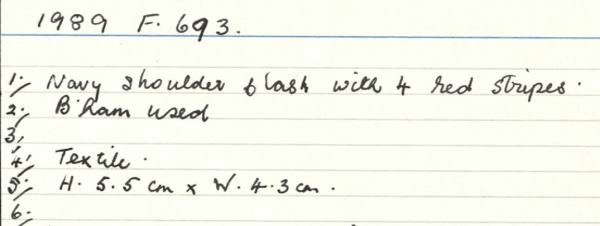 1989 F. 693.
1. Navy shoulder flash with 4 red stripes.
2. B'ham used
3,
4. Textile.
5. H. 5.5 cm x W. 4.3 cm.
6.